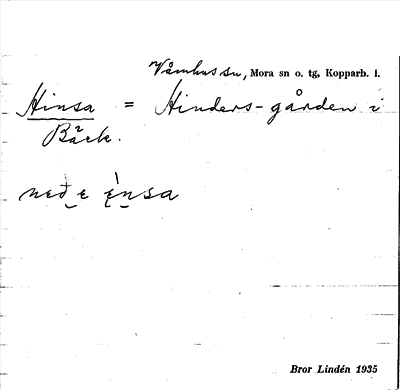 Våmhus sn, Mora sn o. tg, Kopparb. l.
Hinsa = Hinders-gården i
Bäck.
neđ̱e ɛ̀n̠sa
Bror Lindén 1935